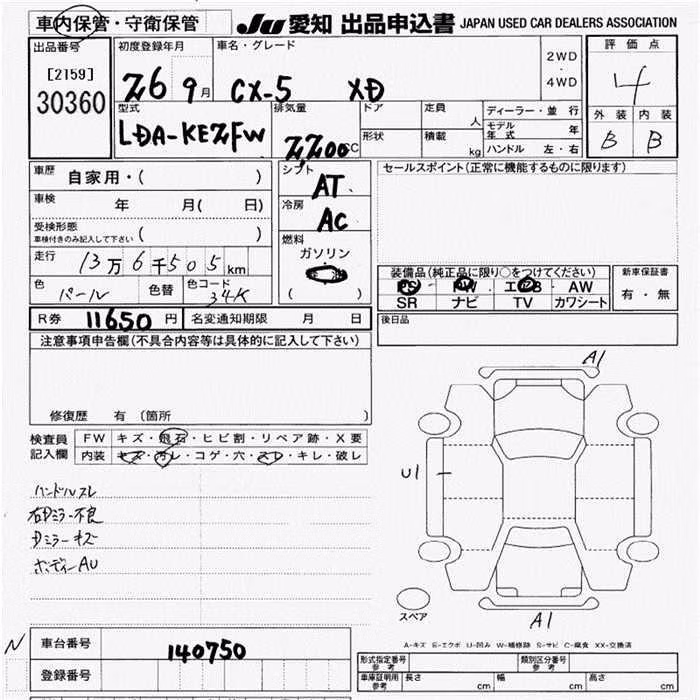 車内保管・守衛保管
JU 愛知 出品申込書 JAPAN USED CAR DEALERS ASSOCIATION
出品番号
[2159]
30360
初度登録年月
26 9月
車名・グレード
CX-5 XD
2WD
・
4WD
評価点
4
外装 内装
B B
型式
LDA-KE2FW
排気量
2,200cc
ドア
定員
人
形状
積載
kg
ディーラー・並行
モデル年式 年
ハンドル 左・右
車歴
自家用・( )
車検
年 月( 日)
受検形態
車検付きのみ記入して下さい ( )
走行
13万6千505km
色
パール
色替
色コード
34K
シフト
AT
冷房
AC
燃料
ガソリン
( )
セールスポイント(正常に機能するものに限ります)
装備品(純正品に限り○をつけてください)
PS・PW・エアB・AW
SR ナビ TV カワシート
新車保証書
有・無
後日品
R券 11650円
名変通知期限 月 日
注意事項申告欄(不具合内容等は具体的に記入して下さい)
修復歴 有(箇所 )
検査員
記入欄
FW キズ・飛石・ヒビ割・リペア跡・X要
内装 キズ・汚レ・コゲ・穴・スレ・キレ・破レ
ハンドルスレ
右Dミラー不良
Dミラーキズ
ボディーAU
A1
U1
A1
スペア
A-キズ E-エクボ U-凹み W-補修跡 S-サビ C-腐食 XX-交換済
N
車台番号
140750
登録番号
形式指定番号
参考
類別区分番号
参考
車庫証明用
参考
長さ cm
幅 cm
高さ cm